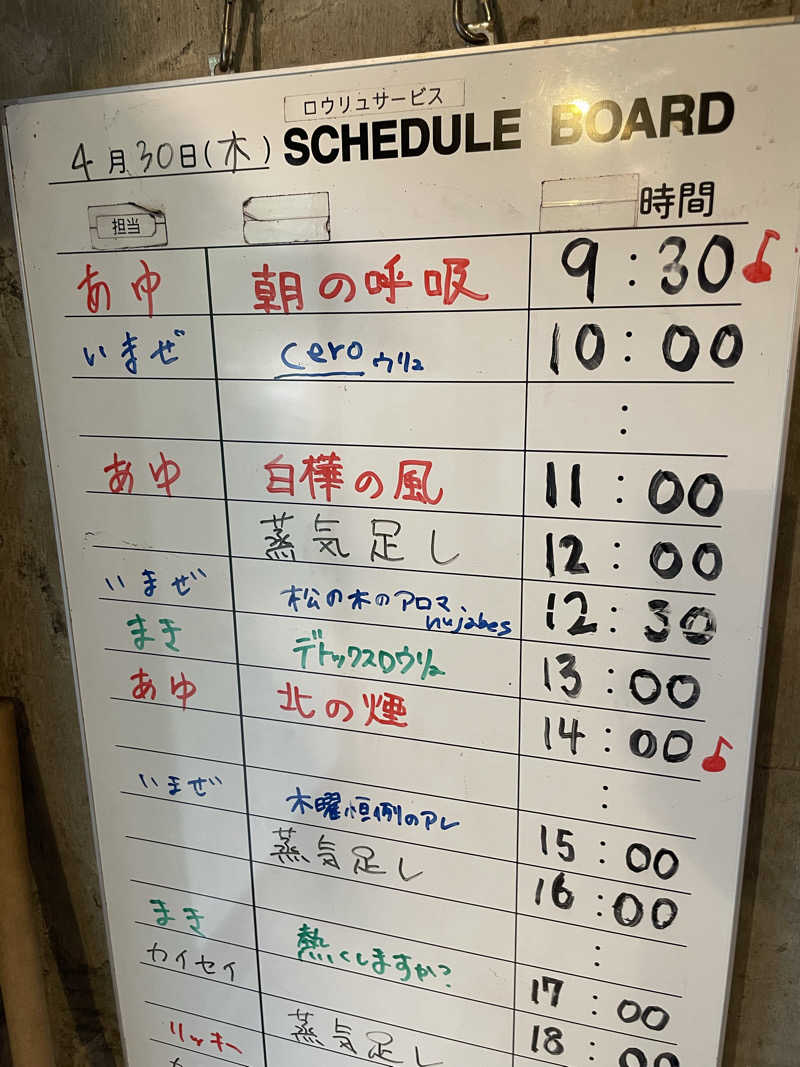 ロウリュサービス
4月30日(木) SCHEDULE BOARD
担当 時間
あゆ 朝の呼吸 9:30
いまぜ ceroウリュ 10:00
:
あゆ 白樺の風 11:00
蒸気足し 12:00
いまぜ 松の木のアロマ、nujabes 12:30
まき デトックスロウリュ 13:00
あゆ 北の煙 14:00
:
いまぜ 木曜恒例のアレ 15:00
蒸気足し 16:00
:
まき 熱くしますか? 17:00
カイセイ
蒸気足し 18:00
リッキー